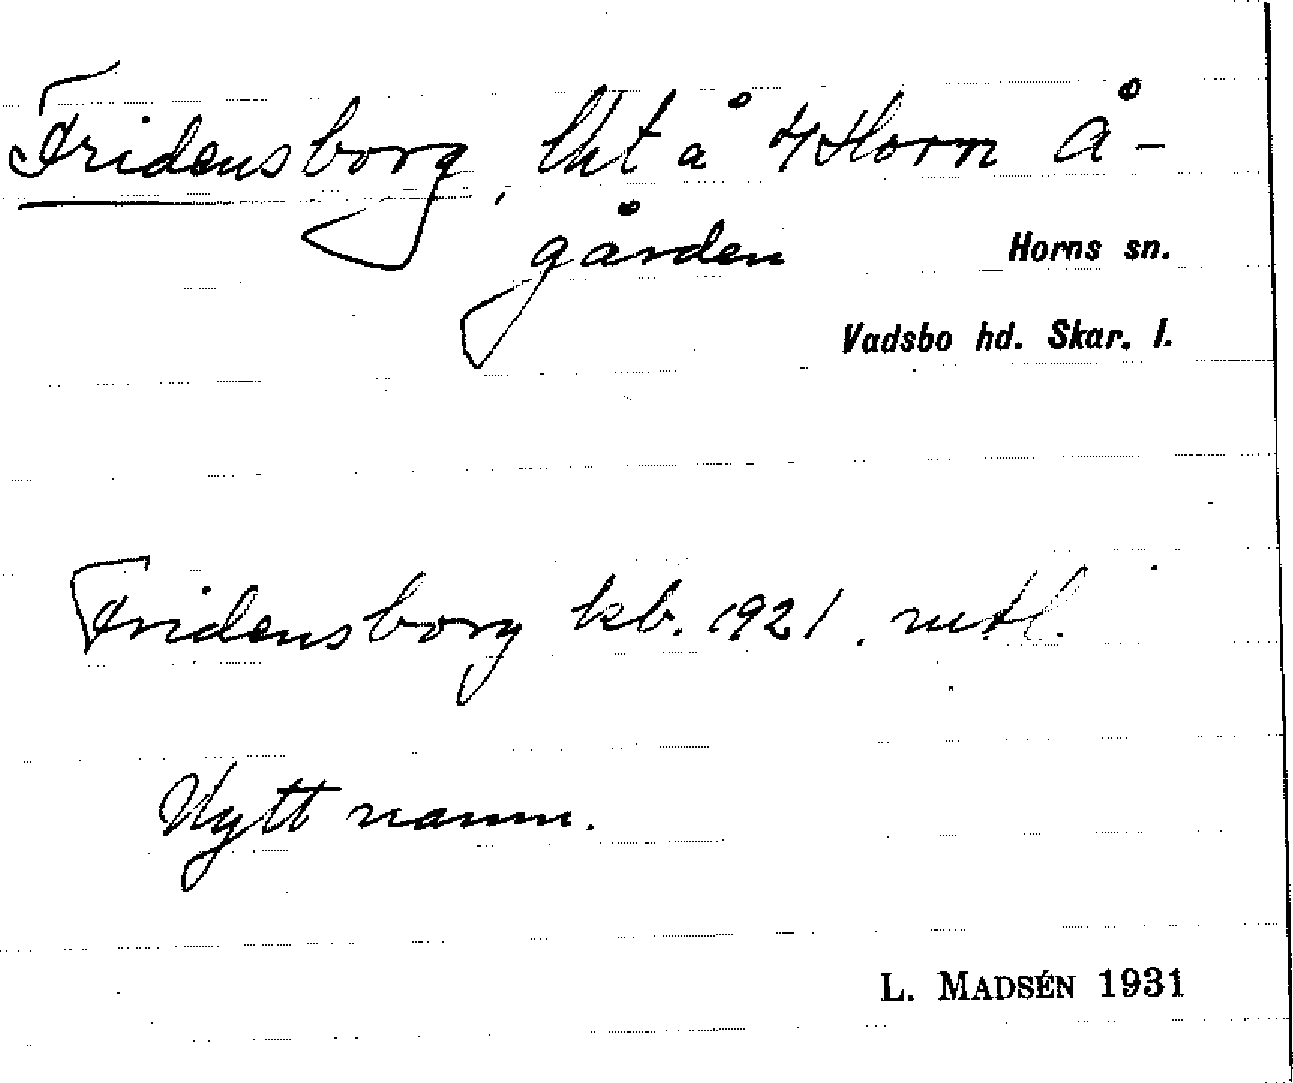 Fridensborg, lht å 4 Horn Å-
gården
Horns sn.
Vadsbo hd. Skar. l.
Fridensborg kb. 1921. mtl.
Nytt namn.
L. MADSÉN 1931